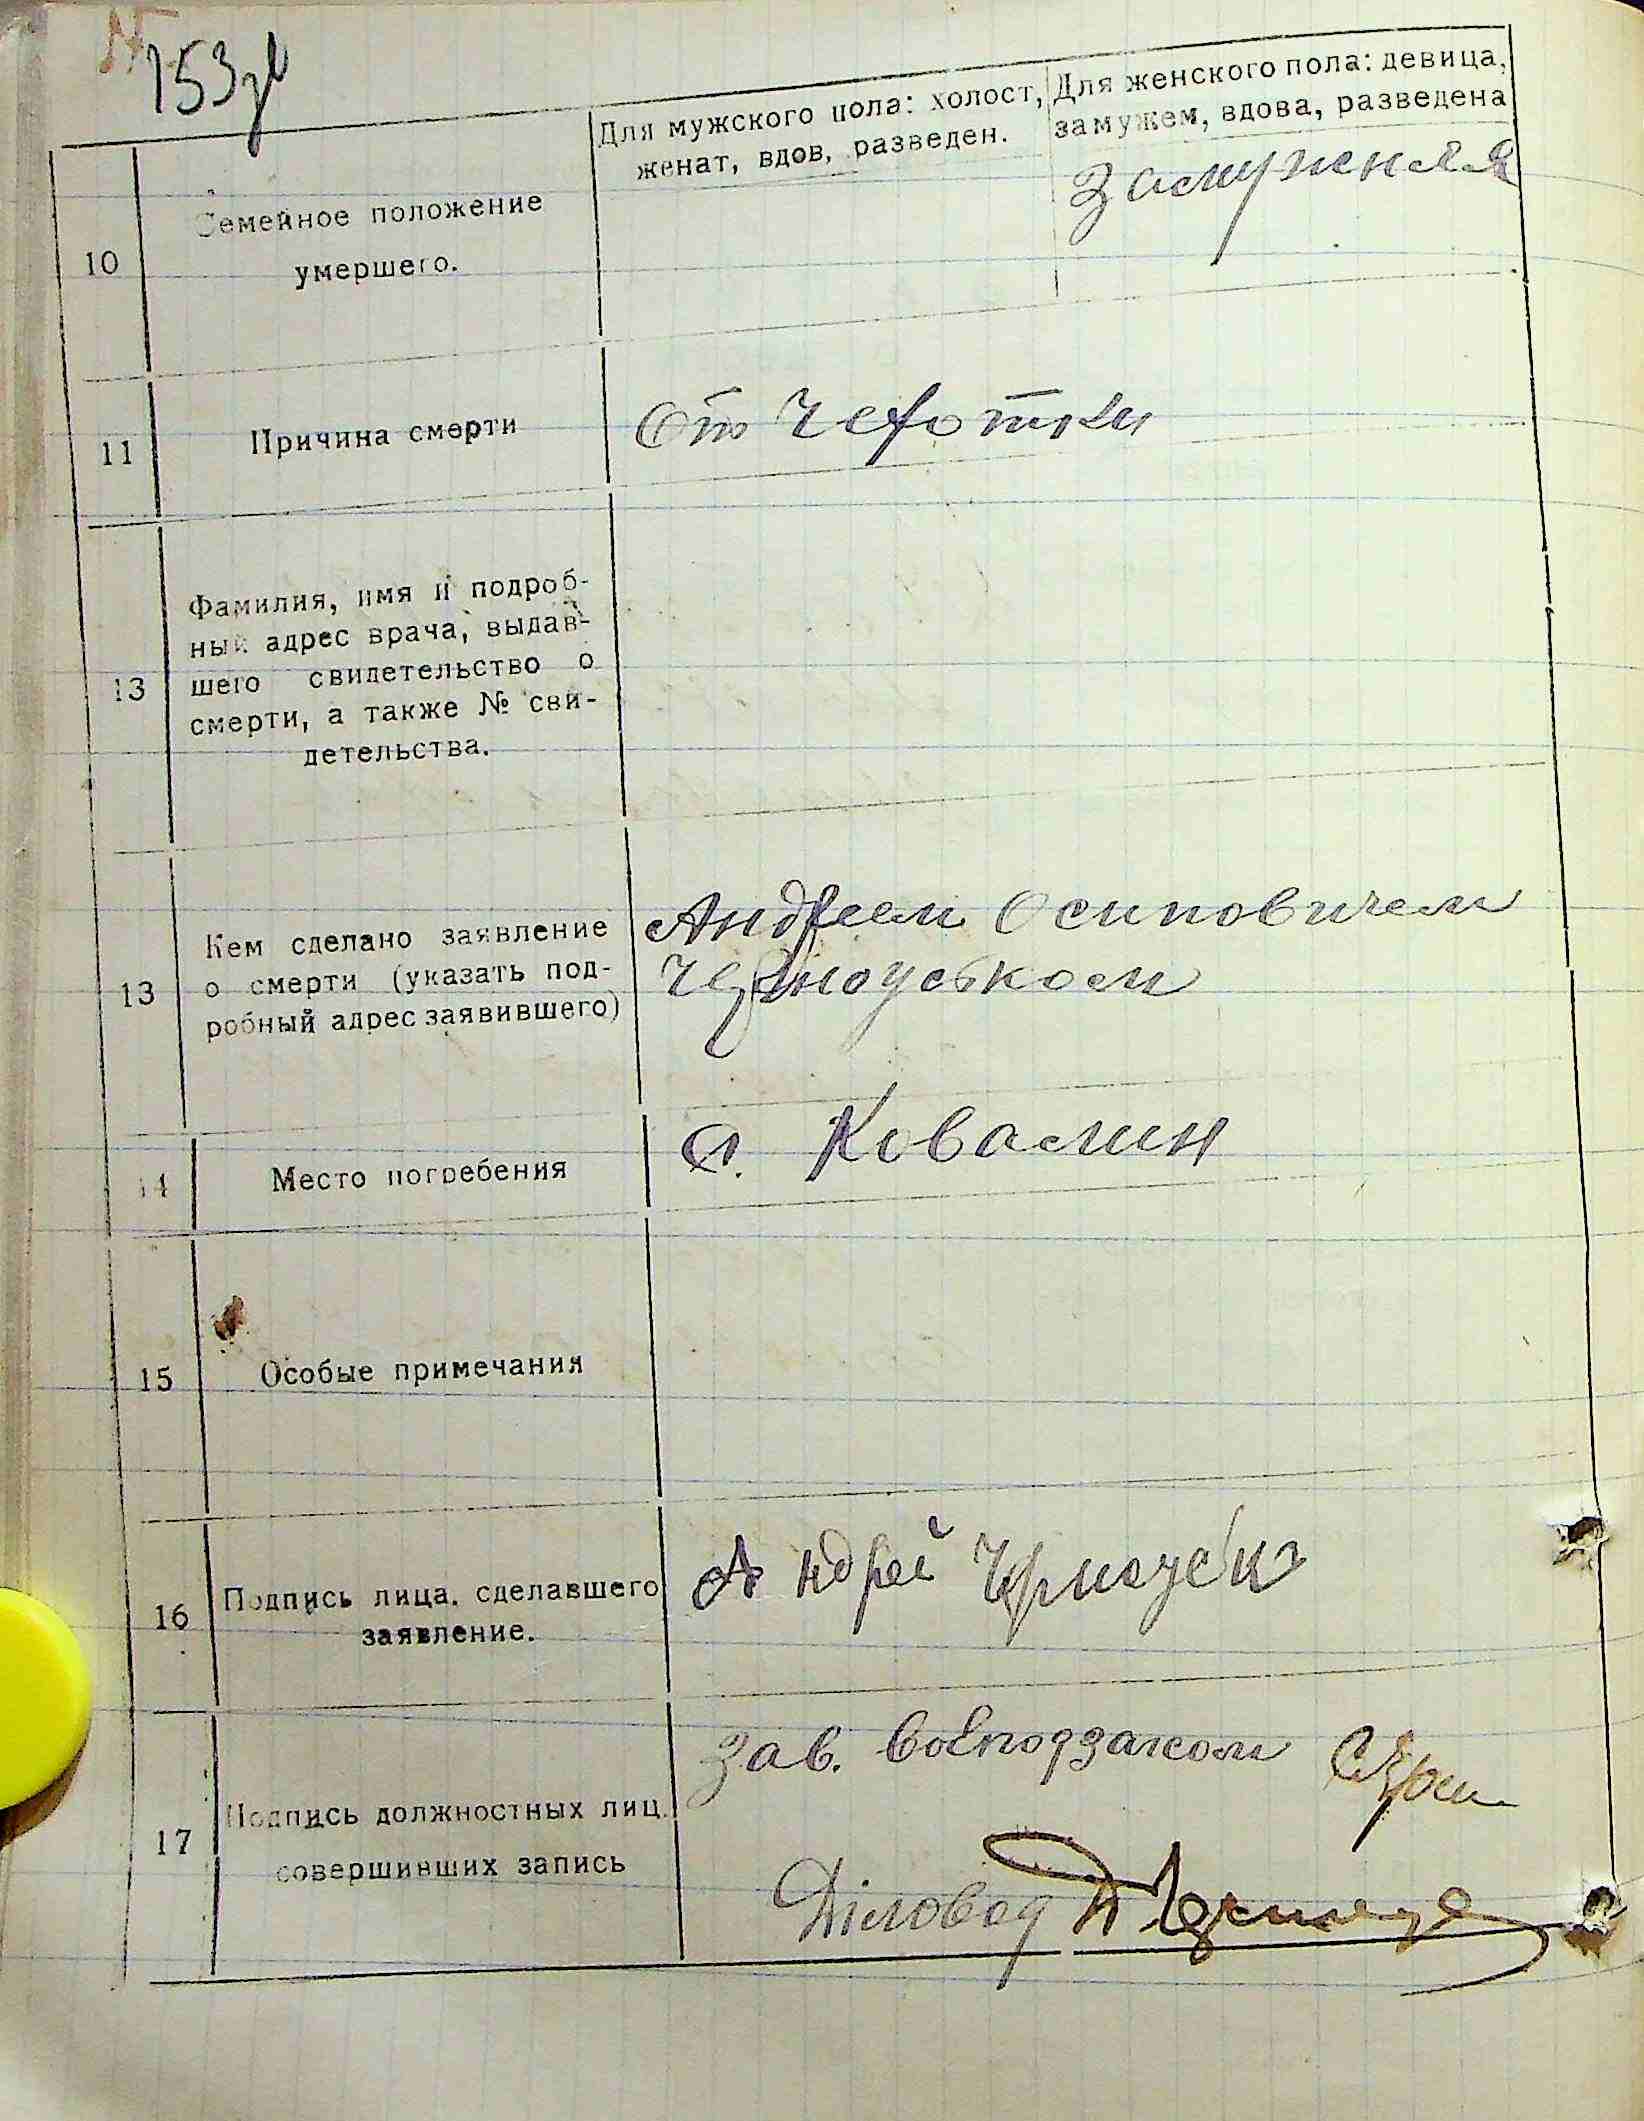 153
Для мужского пола: холост,
женат, вдов, разведен.
Для женского пола: девица,
замужем, вдова, разведена
10
Семейное положение
умершего.
замужняя
11
Причина смерти
От Чехотки
13
Фамилия, имя и подроб-
ный адрес врача, выдав-
шего свидетельство о
смерти, а также № сви-
детельства.
13
Кем сделано заявление
о смерти (указать под-
робный адрес заявившего)
Андреем Осиповичем
Черноуськом
14
Место погребения
с. Ковалин
15
Особые примечания
16
Подпись лица, сделавшего
заявление.
Андрей Черноусько
17
Подпись должностных лиц,
совершивших запись
Зав. Воєнподзагсом
Діловод